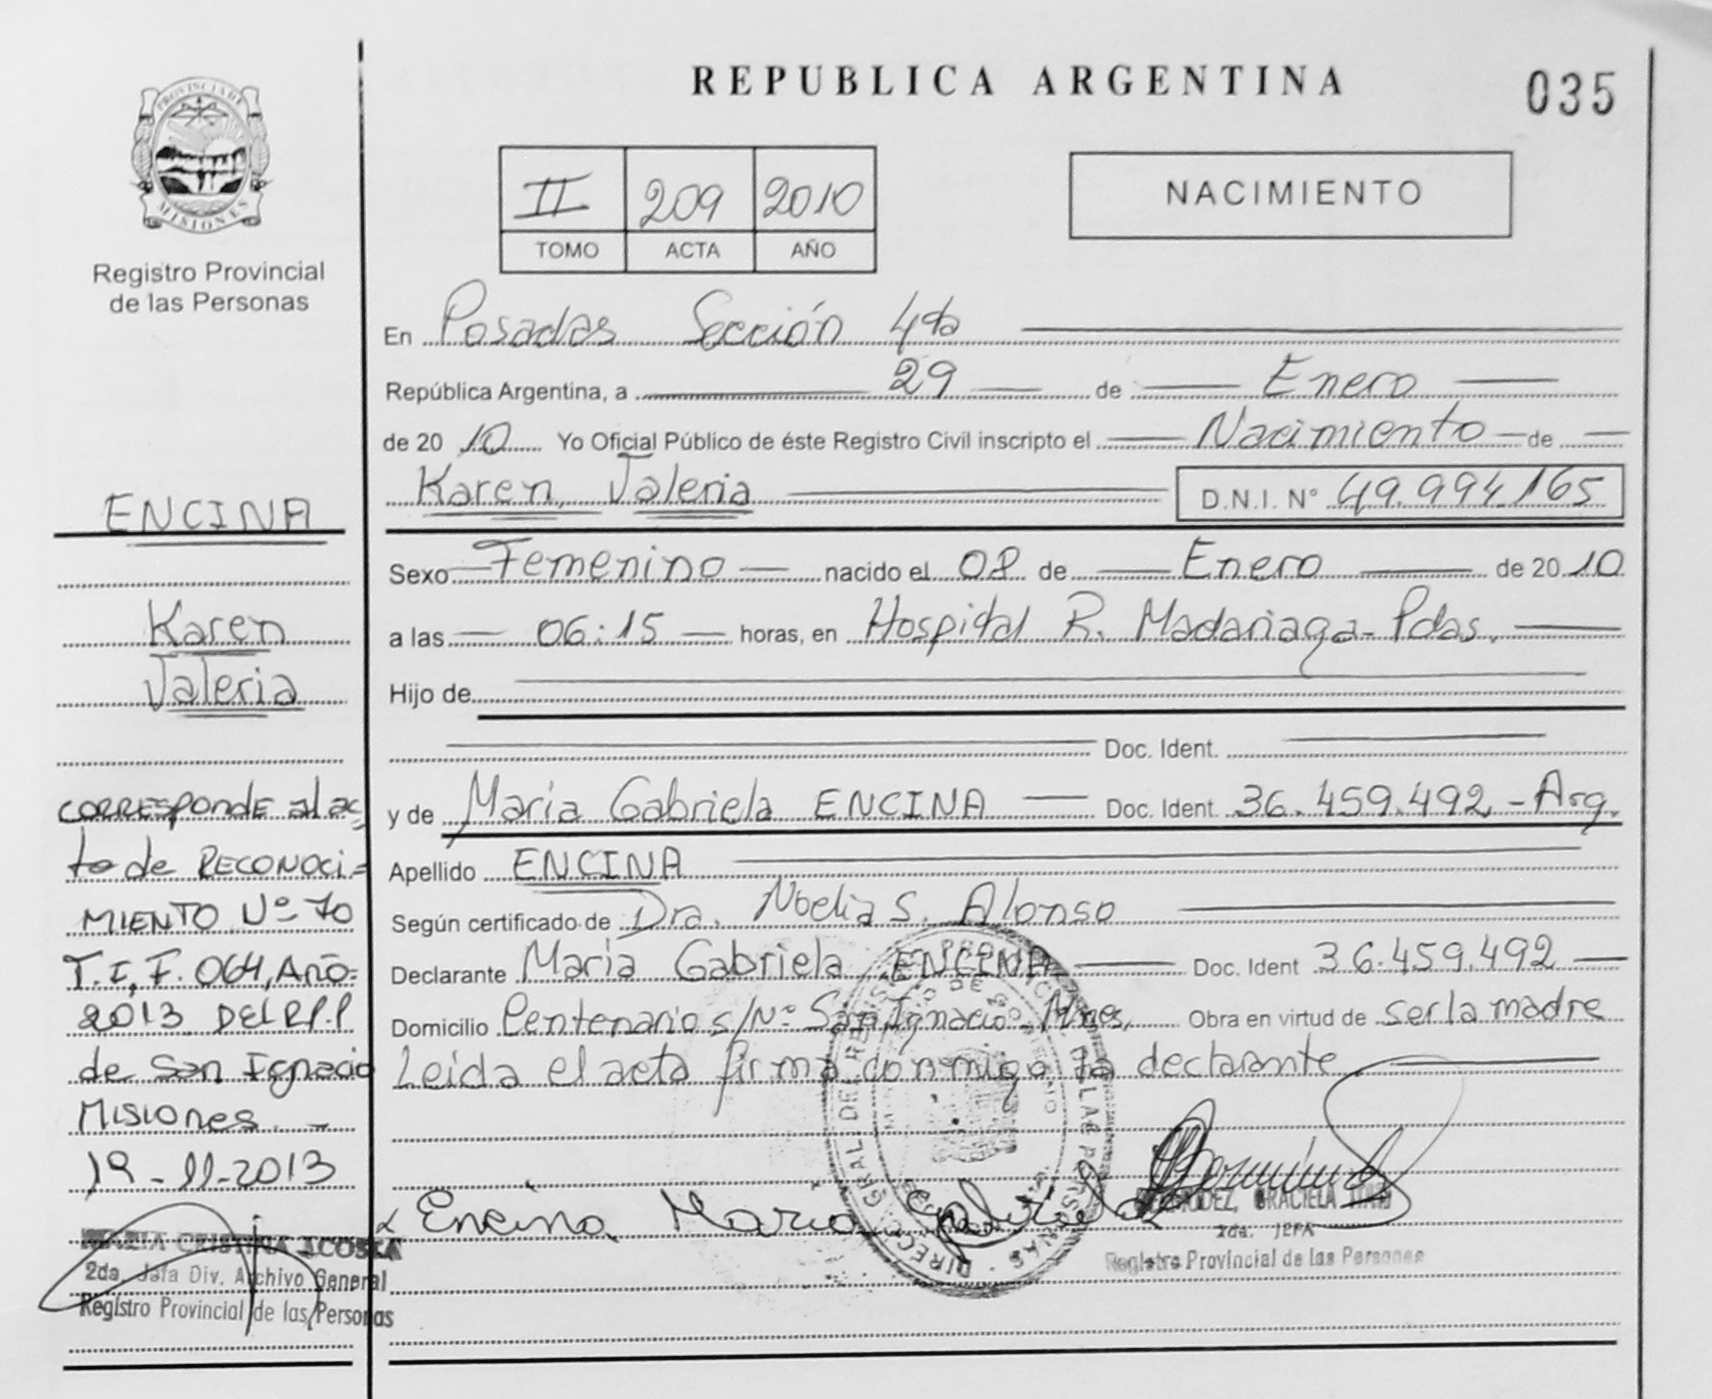 REPUBLICA ARGENTINA
035
PROVINCIA DE
MISIONES
Registro Provincial
de las Personas
II 209 2010
TOMO ACTA AÑO
NACIMIENTO
En Posadas Sección 4ta
República Argentina, a 29 de Enero
de 2010 Yo Oficial Público de éste Registro Civil inscripto el Nacimiento de
Karen, Valeria D.N.I. N° 49.994.165
Sexo Femenino nacido el 08 de Enero de 2010
a las 06:15 horas, en Hospital R. Madariaga-Pdas.
Hijo de
Doc. Ident.
y de María Gabriela ENCINA Doc. Ident. 36.459.492 - Arg.
Apellido ENCINA
Según certificado de Dra. Noelia S. Alonso
Declarante María Gabriela ENCINA Doc. Ident 36.459.492
Domicilio Centenario s/Nº San Ignacio, Mnes, Obra en virtud de ser la madre
Leída el acta firma conmigo la declarante
Encina, María Gabriela
GRACIELA
2da. JEFA
Registro Provincial de las Personas
ENCINA
Karen
Valeria
CORRESPONDE al ac
to de RECONOCI=
MIENTO Nº 70
T.I, F. 064, Año=
2013 DEL R.P.P
de San Ignacio
Misiones. -
19-11-2013
MARIA CRISTINA ACOSTA
2da. Jefa Div. Archivo General
Registro Provincial de las Personas